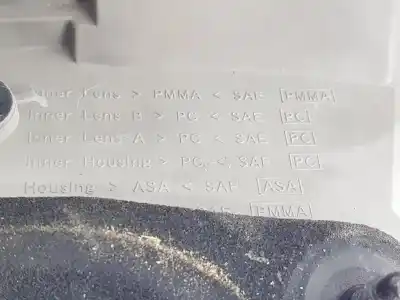 Inner Lens > PMMA < SAE [PMMA]
Inner Lens B > PC < SAE [PC]
Inner Lens A > PC < SAE [PC]
Inner Housing > PC < SAE [PC]
Housing > ASA < SAE [ASA]
SAE [PMMA]